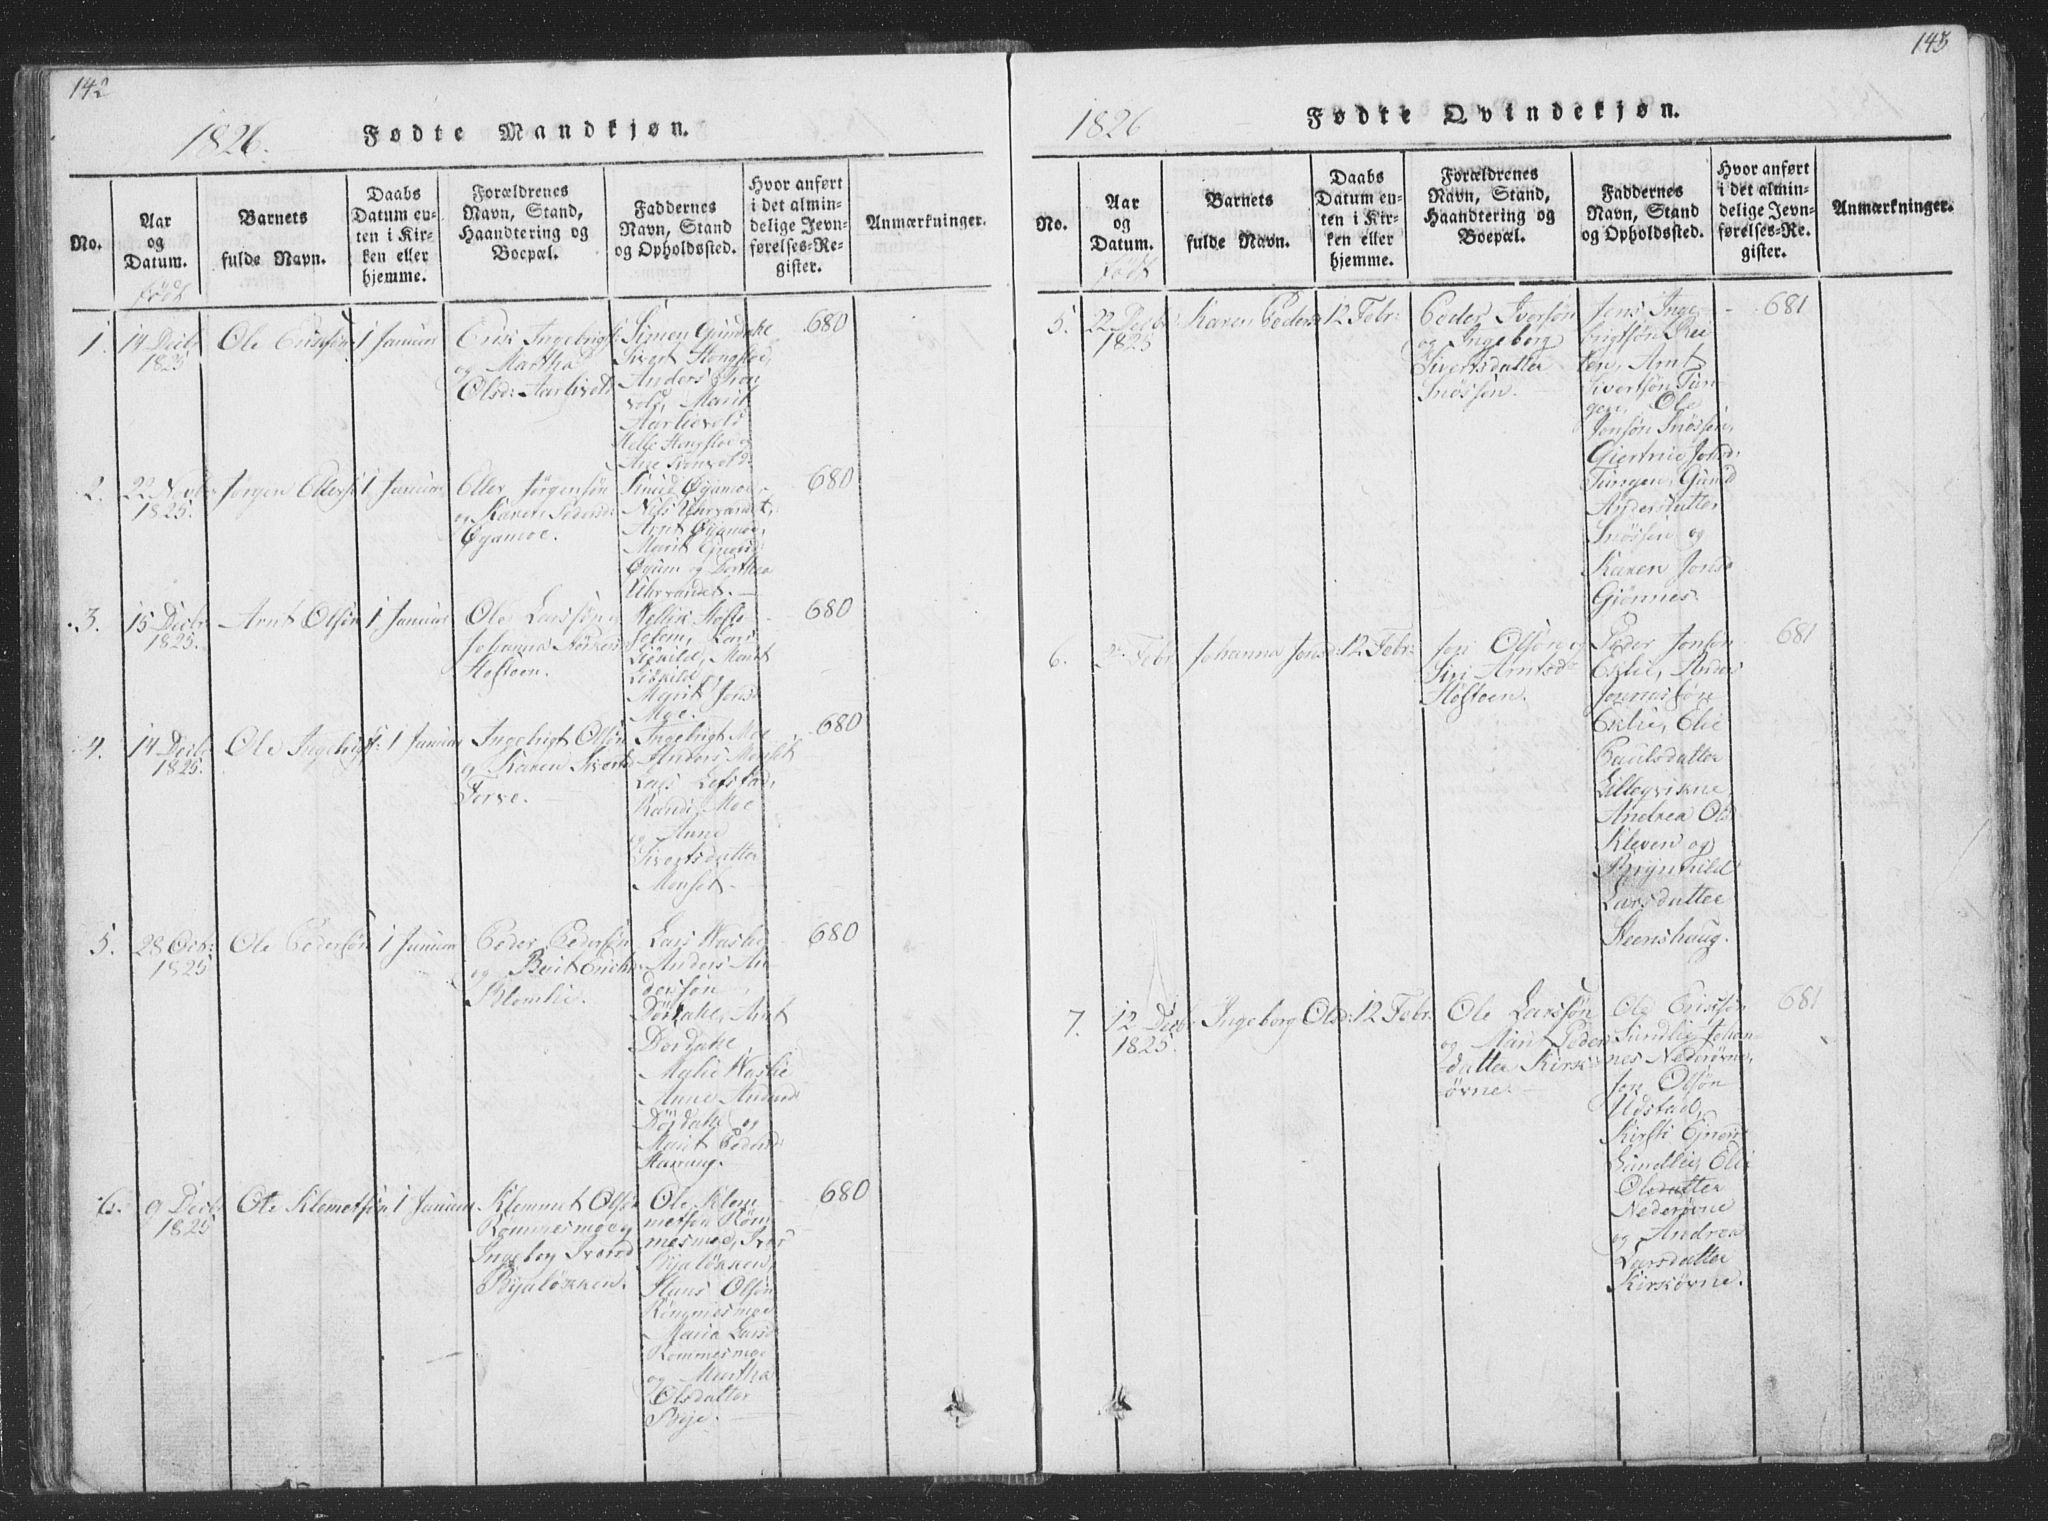 142
1826.
Fødte Mandkjøn.
No.
Aar og Datum.
født
Barnets fulde Navn.
Daabs Datum enten i Kirken eller hjemme.
Forældrenes Navn, Stand, Haandtering og Boepæl.
Faddernes Navn, Stand og Opholdssted.
Hvor anført i det almindelige Jevnførelses-Register.
Anmærkninger.
1.
14 Decbr
1825
Ole Ericksøn
1 Januar
Erik Ingebrigts:
og Martha
Olsd: Aarlivold
Simen Grindake
Sivert Hongsloe,
Anders Tron
vold, Marit
Aarlivold
Helle Hongsloe og
Ane Tronvold:
680
2.
22 Novbr
1825.
Jørgen Ellers:
1 Januar
Eller Jørgensøn
og Karen Pedersd:
Øyamoe.
Sivert Øyamoe,
Nils Uhrvandet,
Arnt Øyamoe,
Marit
Øyum og Dorthea
Uhrvandet.
680
3.
15 Decbr
1825.
Arnt Olsøn
1 Januar
Ole Larssøn og
Johanna
Hoftoen.
Lars
Liskilde, Marit
Liskilde og
Marit Jonsd
Moe.
680
4.
14 Decbr
1825.
Ole Ingebrigts:
1 Januar
Ingebrigt Olsøn
og Karen Siverts
Torve.
Ingebrigt Moe
Anders Monset
Lars Lefstad,
Randi Moe
og Anne
Sivertsdatter
Monset.
680
5.
28 Octb:
1825
Ole Pedersøn
1 Januar
Peder Pedersøn
og Berit Ericks:
Klomlie.
Lars Waslie
Anders An-
dersøn
Dørdake, Arnt
Dørdake
Malie Waslie
Anne Andersd
Dørdake og
Marit Pedersd:
Haraug.
680
6.
9 Decbr
1825
Ole Klemetsøn
1 Januar
Klemmet Olsøn
Rommesmoe og
Ingebor Iversd
Byeløkken.
Ole Klem
metsøn Rom
mesmoe, Iver
Byeløkken,
Hans Olsøn
Rommesmoe
Maria Larsd
Rommesmoe
og Martha
Olsdatter
Bye.
680
143
1826
Fødte Qvindekjøn.
No.
Aar og Datum.
født
Barnets fulde Navn.
Daabs Datum enten i Kirken eller hjemme.
Forældrenes Navn, Stand, Haandtering og Boepæl.
Faddernes Navn, Stand og Opholdssted.
Hvor anført i det almindelige Jevnførelses-Register.
Anmærkninger.
5.
22 Decbr
1825
Karen Peders:
12 Febr:
Peder Iversøn
og Ingeborg
Sivertsdatter
Snøssen.
Jens Inge
brigtsøn Ree
ten, Arnt
Sivertsøn Tun-
gen, Ole
Jonsøn Snøssen,
Giertrue Jonsd:
Tungen, Gunild
Andersdatter
Snøssen og
Karen Jonsd
Gjønnes.
681
6.
Febr
Johanna Jonsd:
12 Febr:
Jon Olsøn og
Siri Arntsd
Hoftoen.
Peder Jonsøn
Eklie, Anders
Eklie, Elie
Paulsdatter
Lillegvikne,
Andrea Ols:
Kleven og
Brynhild
Larsdatter
Steenshaug.
681
7.
12 Decbr
1825.
Ingeborg Olsd:
12 Febr.
Ole Larssøn
og Marit Peders
datter Kirk-
øvne.
Ole Ericksøn
Sundlie, Johan-
nes Nederøvne,
Jon Olsøn
Udstad,
Kirsti
Sundlie, Elie
Olsdatter
Nederøvne
og Andrea
Larsdatter
Kirkøvne.
681